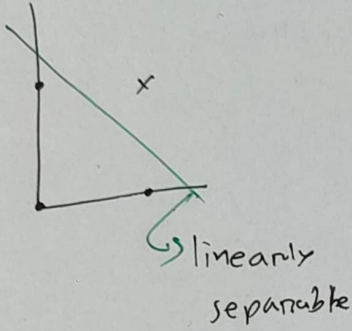 x
linearly
separable